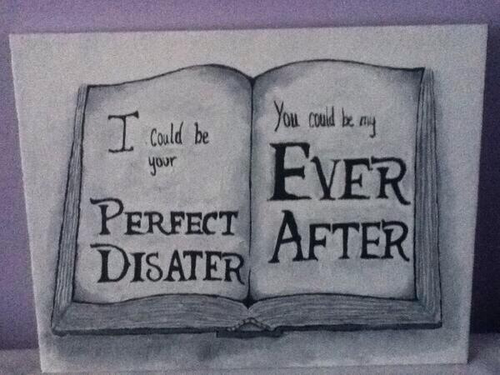 I could be
your
PERFECT
DISATER
You could be my
EVER
AFTER